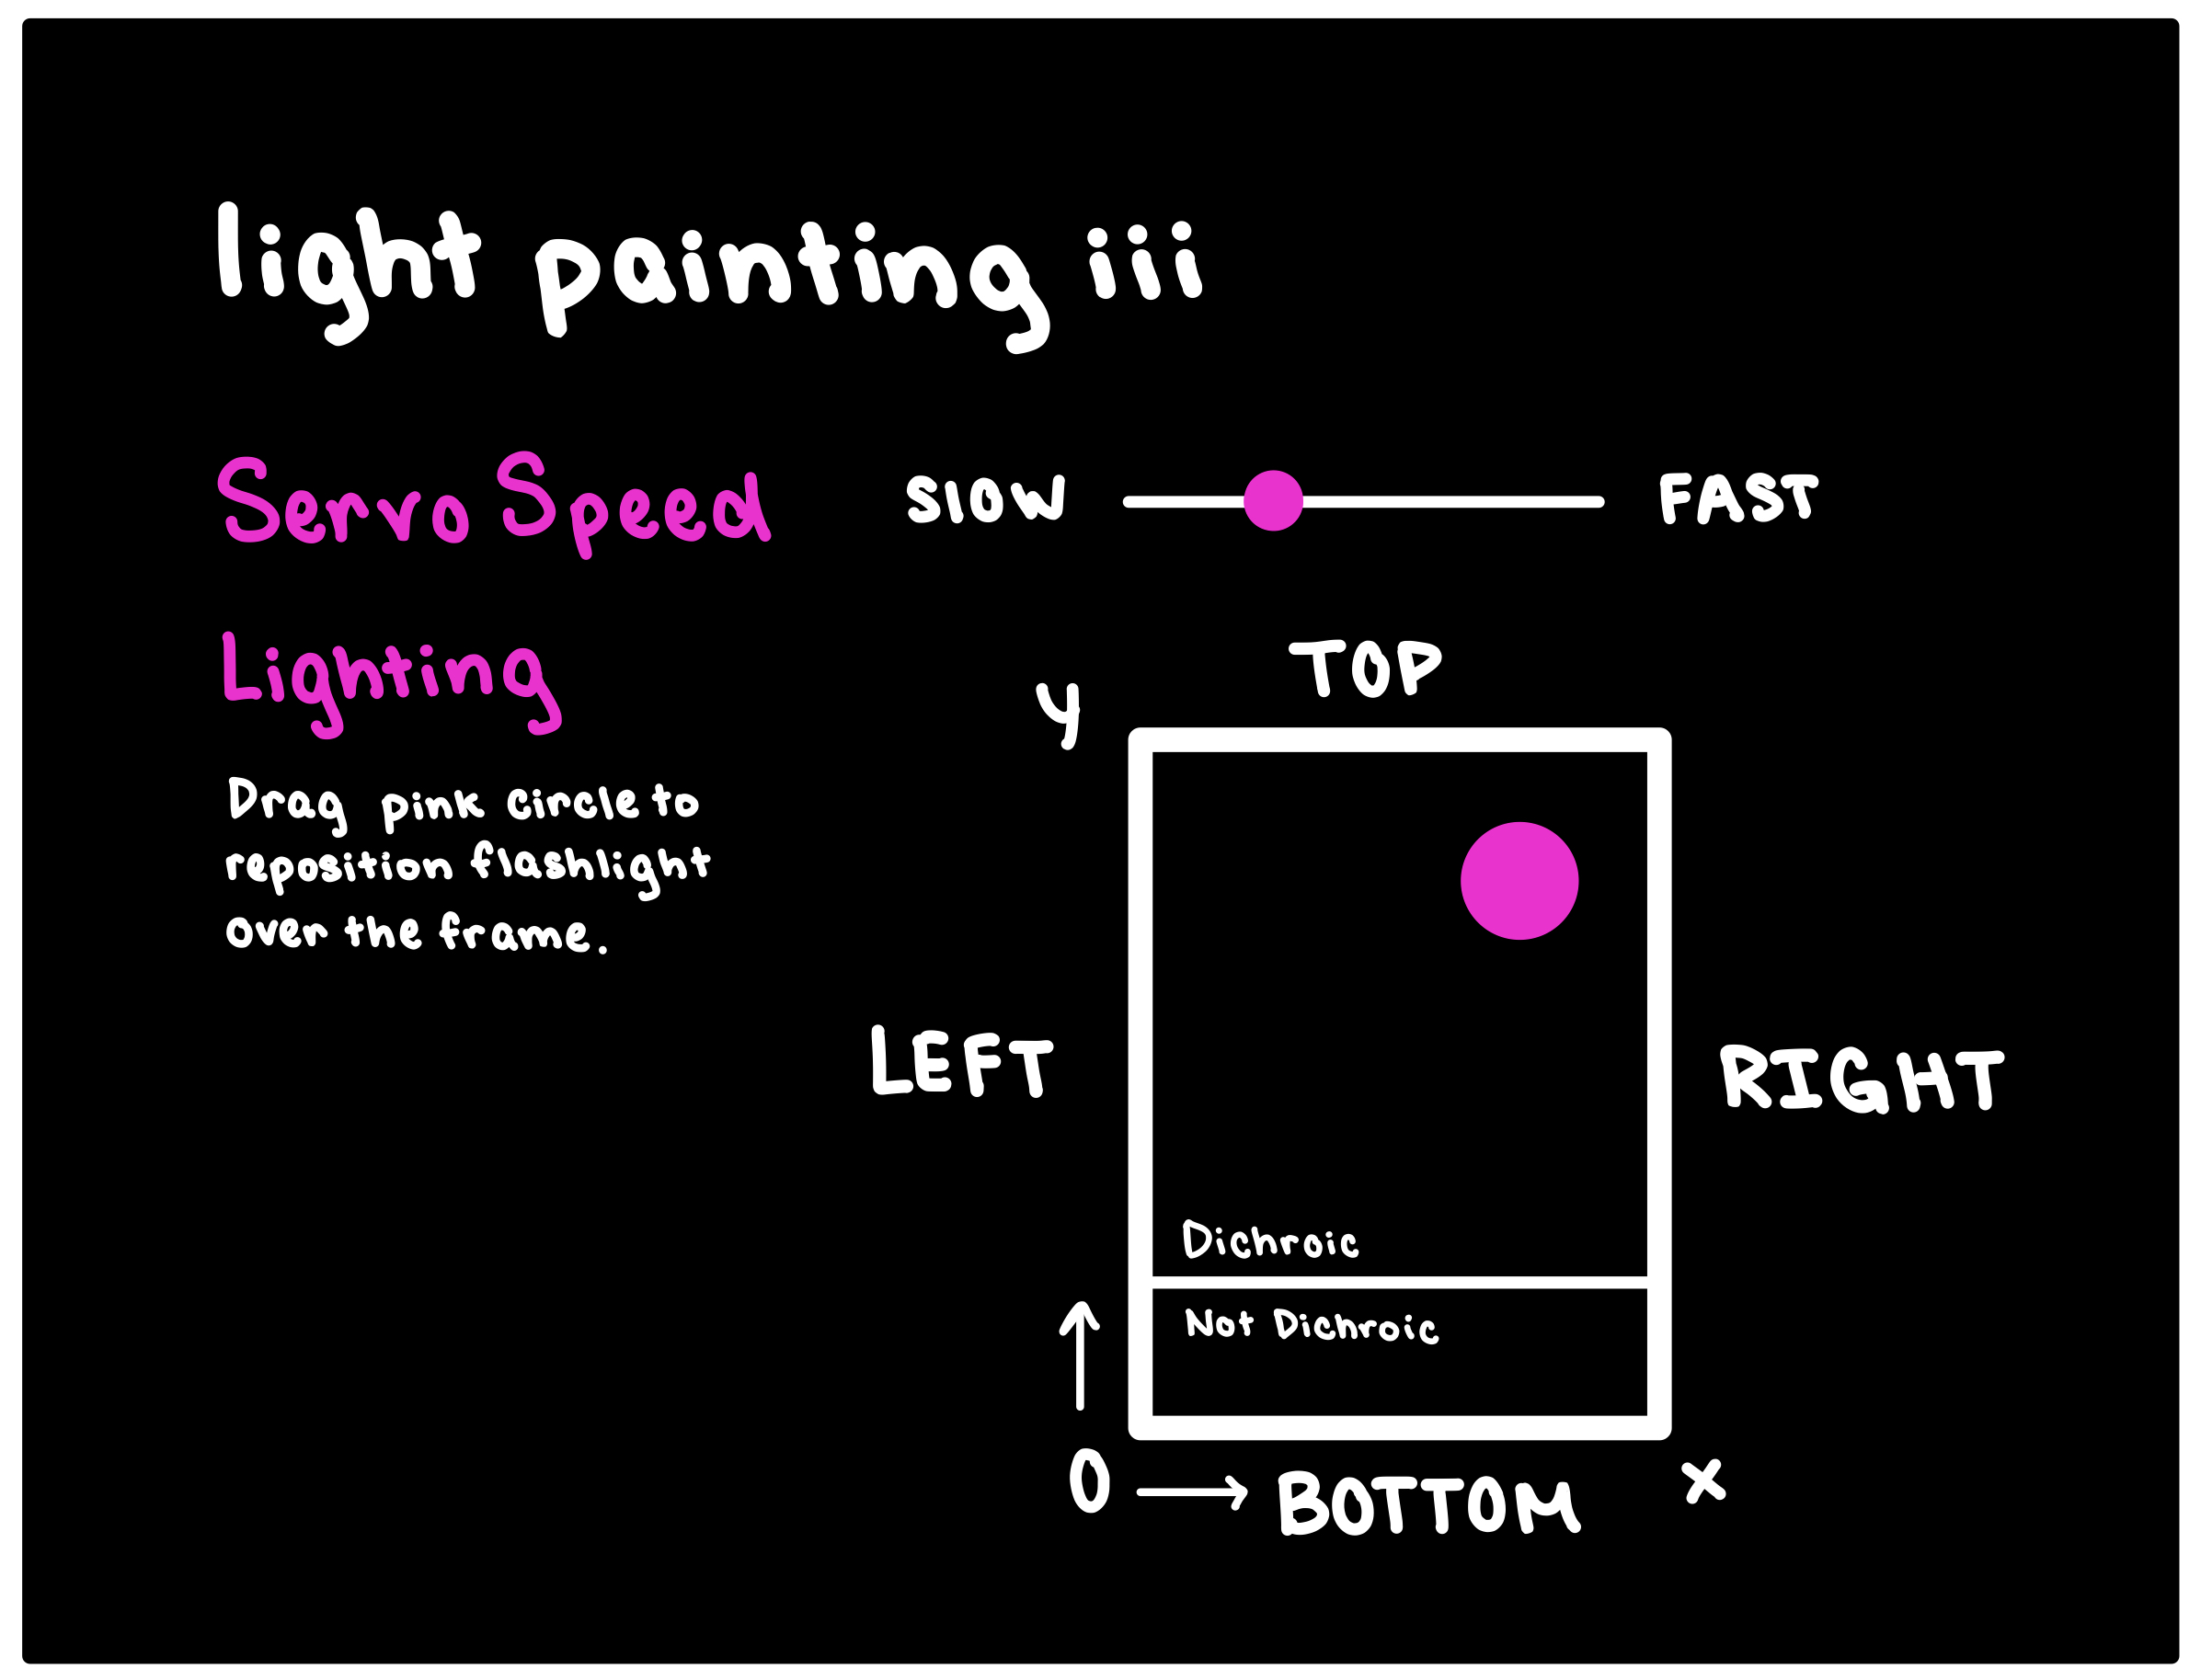 light painting iii
Servo Speed SLOW FAST
Lighting
TOP
y
Drag pink circle to
reposition flashlight
over the frame.
LEFT RIGHT
Dichroic
Not Dichroic
0 BOTTOM x